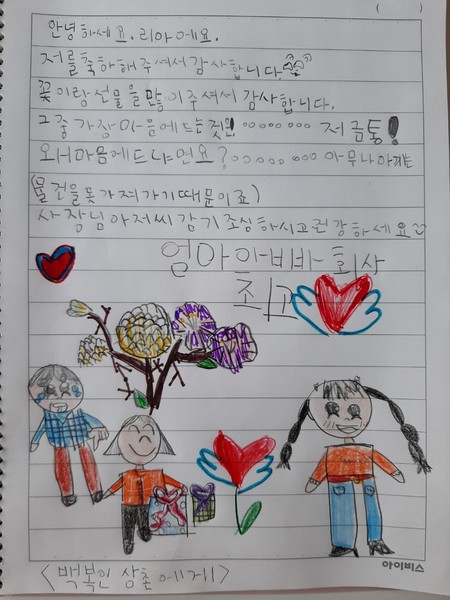 안녕하세요. 리아에요.
저를축하해주셔서감사합니다
꽃이랑선물을많이주셔서감사합니다.
그중가장마음에드는것은 ○○○○○ ○○○ 저금통!
왜마음에드냐면요? ○○○○○ ○○○ 아무나아끼는
(물건을못가져가기때문이죠)
사장님아저씨감기조심하시고건강하세요
엄마아빠회사
최고
아이비스
<백복인 삼촌에게>